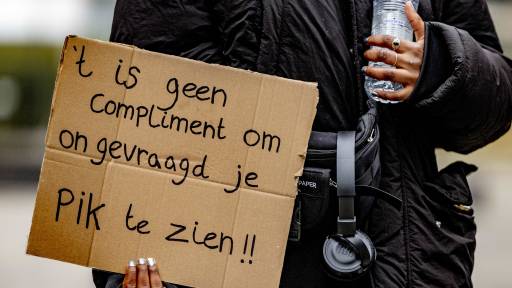 't is geen
compliment om
on gevraagd je
Pik te zien!!
PAPER